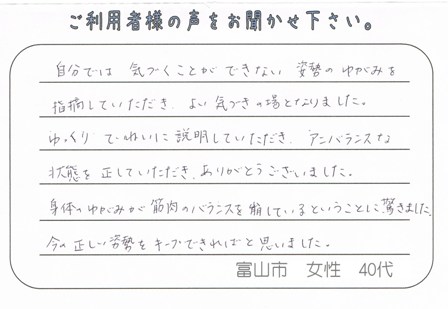 ご利用者様の声をお聞かせ下さい。
自分では 気づくことができない 姿勢のゆがみを
指摘していただき、よい気づきの場となりました。
ゆっくり ていねいに説明していただき、アンバランスな
状態を正していただき、ありがとうございました。
身体のゆがみが筋肉のバランスを崩しているということに、驚きました。
今の正しい姿勢をキープできればと思いました。
富山市 女性 40代